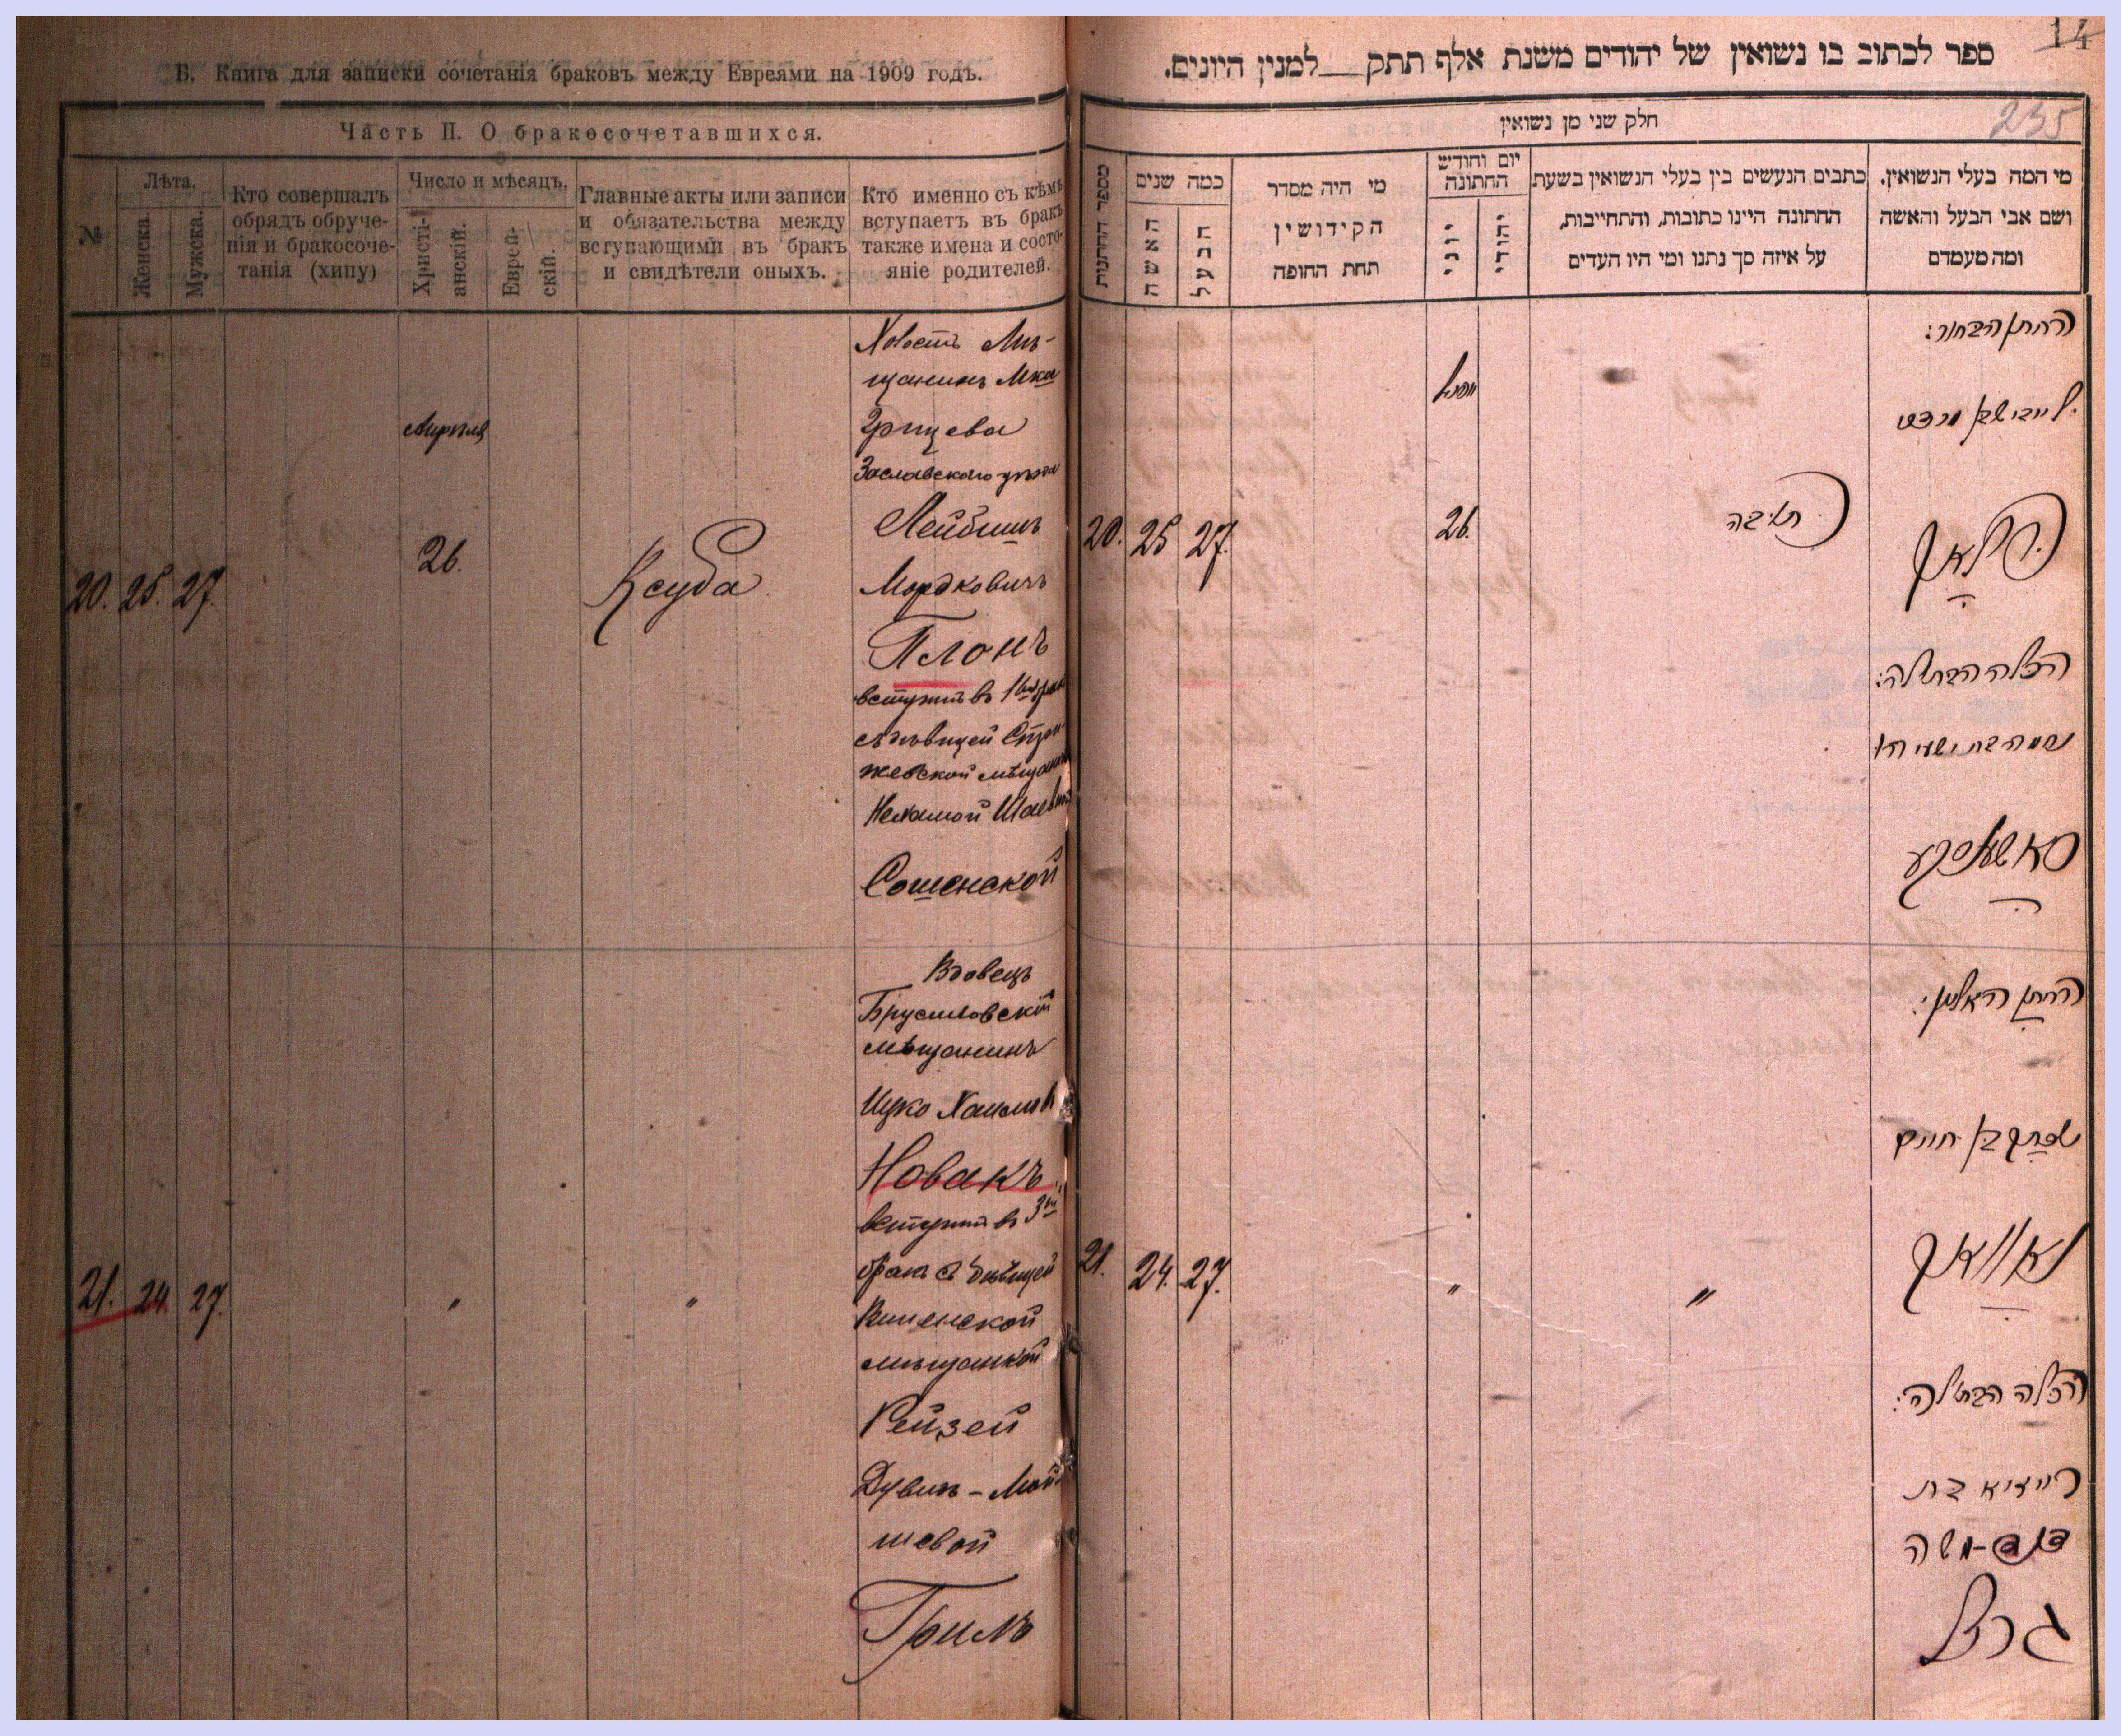 Б. Книга для записки сочетанія браковъ между Евреями на 1909 годъ.
Часть II. О бракосочетавшихся.
№
Лѣта.
Женска.
Мужска.
Кто совершалъ
обрядъ обруче-
нія и бракосоче-
танія (хипу)
Число и мѣсяцъ.
Христі-
анскій.
Еврей-
скій.
Главные акты или записи
и обязательства между
вступающими въ бракъ
и свидѣтели оныхъ.
Кто именно съ кѣмъ
вступаетъ въ бракъ
также имена и состо-
яніе родителей.
Холостъ Мѣ-
щанинъ Мка
Грицева
Заславского уѣзда
Апрѣля
Лейбишъ
26.
Мордковичъ
20. 25. 27.
Ксуба
Плонъ
вступилъ въ 1й бракъ
съ дѣвицей
мѣщанкой
Нехамой Шаевной
Сошенской
Вдовецъ
Брусиловскій
мѣщанинъ
Ицко Хаимов
Новакъ
вступилъ въ 3й
бракъ съ дѣвицей
мѣщанкой
21. 24. 27.
"
"
Рейзей
Дувидъ-Мой
шевой
Гриль
14
ספר לכתוב בו נשואין של יהודים משנת אלף תתק למנין היונים.
235
חלק שני מן נשואין
מי המה בעלי הנשואין.
ושם אבי הבעל והאשה
ומה מעמדם
כתבים הנעשים בין בעלי הנשואין בשעת
החתונה היינו כתובות, והתחייבות,
על איזה סך נתנו ומי היו העדים
יום וחודש
החתונה
יהודי
יוני
מי היה מסדר
הקידושין
תחת החופה
כמה שנים
הבעל
האשה
מספר החתנות
החתן הבחור:
לייביש בן מרדכי
אפריל
20. 25 27.
26.
כתובה
פלאן
הכלה הבתולה:
נחמה בת ישעיהו
סאשענסקע
החתן האלמן:
יצחק בן חיים
נאוואק
21. 24. 27.
"
"
הכלה הבתולה:
רייזיא בת
דוד-משה
גריל